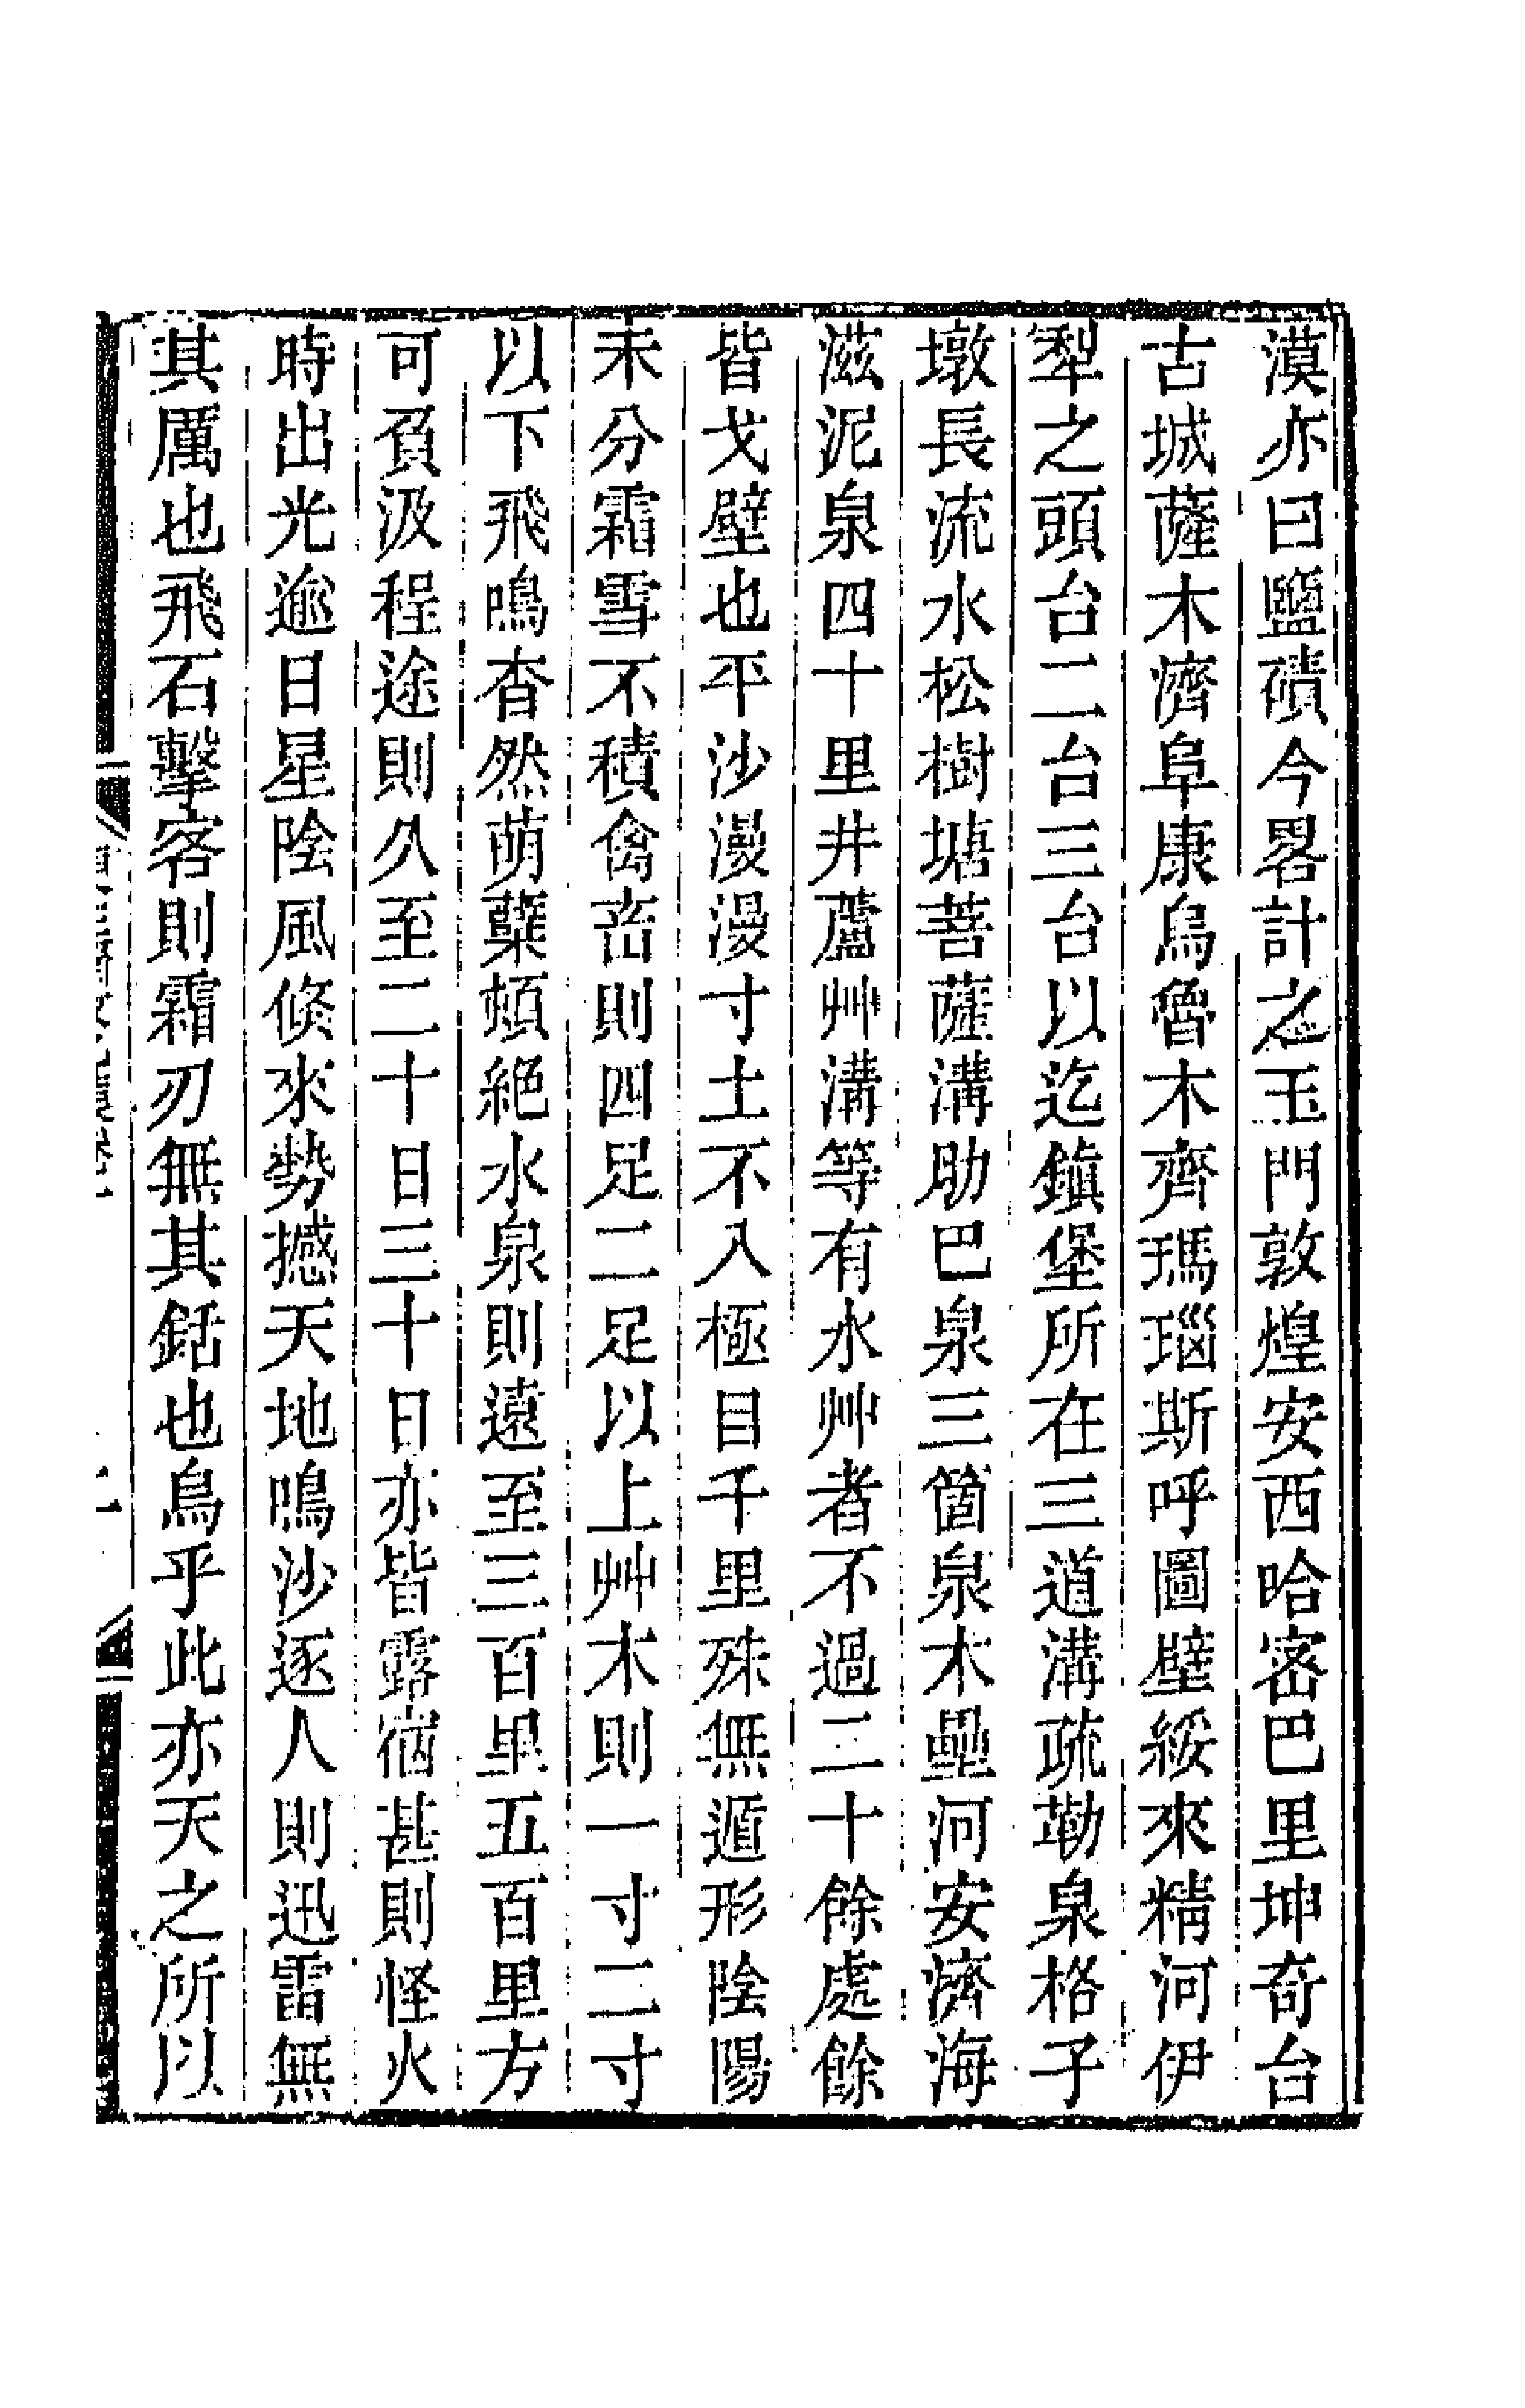 漠亦曰鹽磧今畧計之玉門敦煌安西哈密巴里坤奇台
古城薩木濟阜康烏魯木齊瑪瑙斯呼圖壁綏來精河伊
犁之頭台二台三台以迄鎮堡所在三道溝疏勒泉格子
墩長流水松樹塘菩薩溝助巴泉三箇泉木壘河安濟海
滋泥泉四十里井蘆艸溝等有水艸者不過二十餘處餘
皆戈壁也平沙漫漫寸土不入極目千里殊無遁形陰陽
未分霜雪不積禽畜則四足二足以上艸木則一寸二寸
以下飛鳴杳然萌蘖頓絕水泉則遠至三百里五百里方
可負汲程途則久至二十日三十日亦皆露宿甚則怪火
時出光逾日星陰風倏來勢撼天地鳴沙逐人則迅雷無
其厲也飛石擊客則霜刃無其銛也烏乎此亦天之所以